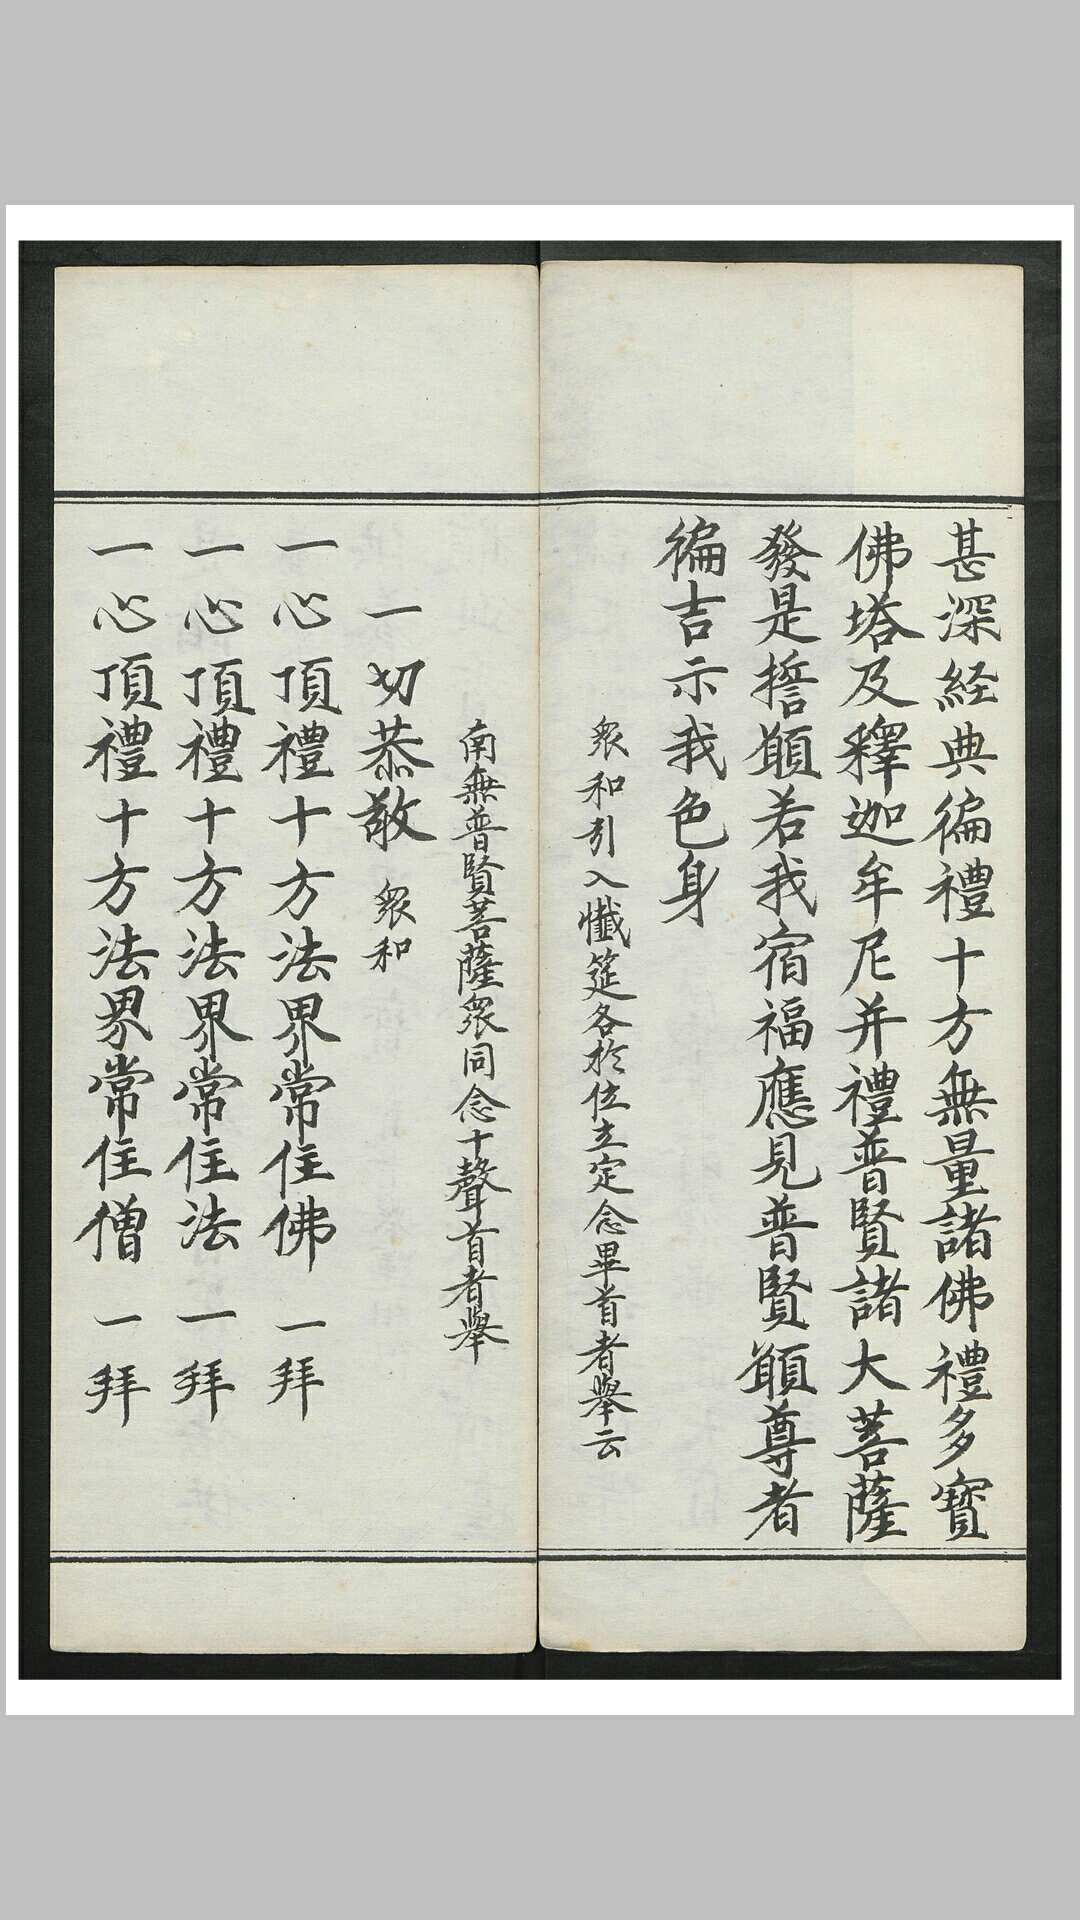 甚深経典徧禮十方無量諸佛禮多寳
佛塔及釋迦牟尼并禮普賢諸大菩薩
發是誓願若我宿福應見普賢願尊者
徧吉示我色身
衆和引入懺筵各於位立定念畢首者舉云
南無普賢菩薩衆同念十聲首者舉
一切恭敬 衆和
一心頂禮十方法界常住佛 一拜
一心頂禮十方法界常住法 一拜
一心頂禮十方法界常住僧 一拜